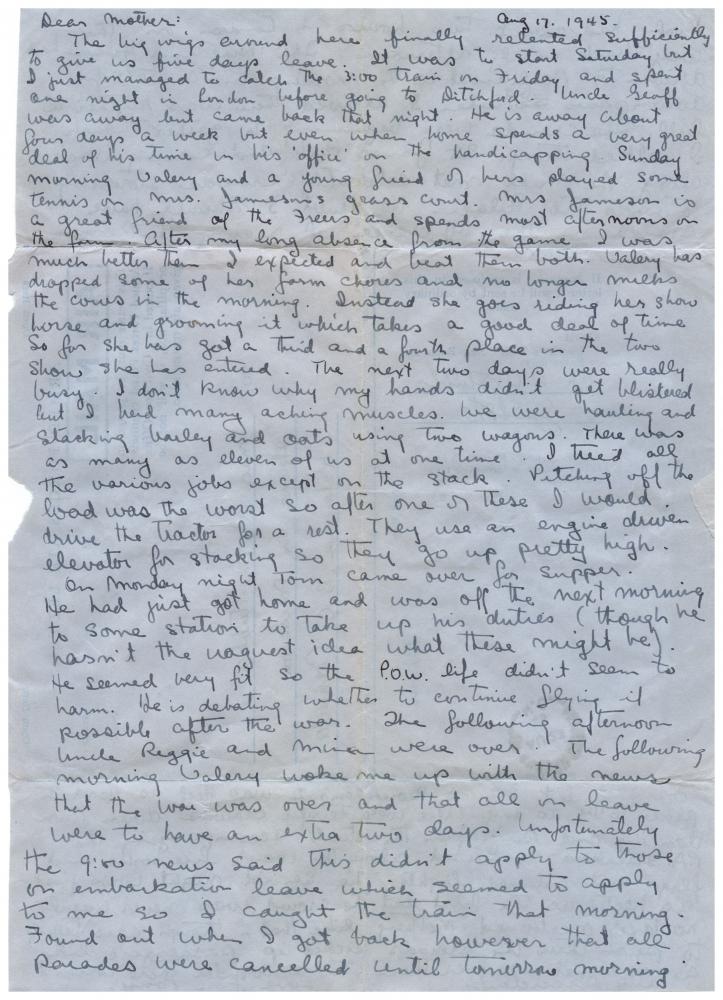 Dear Mother:
Aug 17. 1945.
The big wigs around here finally relented sufficiently
to give us five days leave. It was to start Saturday but
I just managed to catch the 3:00 train on Friday and spent
one night in London before going to Ditchford. Uncle Geoff
was away but came back that night. He is away about
four days a week but even when home spends a very great
deal of his time in his 'office' on the handicapping Sunday
morning Valery and a young friend of hers played some
tennis on Mrs. Jameson's grass court. Mrs Jameson is
a great friend of the Freers and spends most afternoons on
the farm. After my long absence from the game I was
much better then I expected and beat them both. Valery has
dropped some of her farm chores and no longer milks
the cows in the morning. Instead she goes riding her show
horse and grooming it which takes a good deal of time
So far she has got a third and a fourth place in the two
show she has entered. The next two days were really
busy. I don't know why my hands didn't get blistered
but I had many aching muscles. We were hauling and
stacking barley and oats using two wagons. There was
as many as eleven of us at one time. I tried all
the various jobs except on the stack. Pitching off the
load was the worst so after one of these I would
drive the tractor for a rest. They use an engine driven
elevator for stacking so they go up pretty high.
On Monday night Tom came over for supper.
He had just got home and was off the next morning
to some station to take up his duties (though he
hasn't the vaguest idea what these might be).
He seemed very fit so the P.O.W. life didn't seem to
harm. He is debating whether to continue flying if
possible after the war. The following afternoon
Uncle Reggie and Mina were over. The following
morning Valery woke me up with the news
that the war was over and that all on leave
were to have an extra two days. Unfortunately
the 9:00 news said this didn't apply to those
on embarkation leave which seemed to apply
to me so I caught the train that morning.
Found out when I got back however that all
parades were cancelled until tomorrow morning